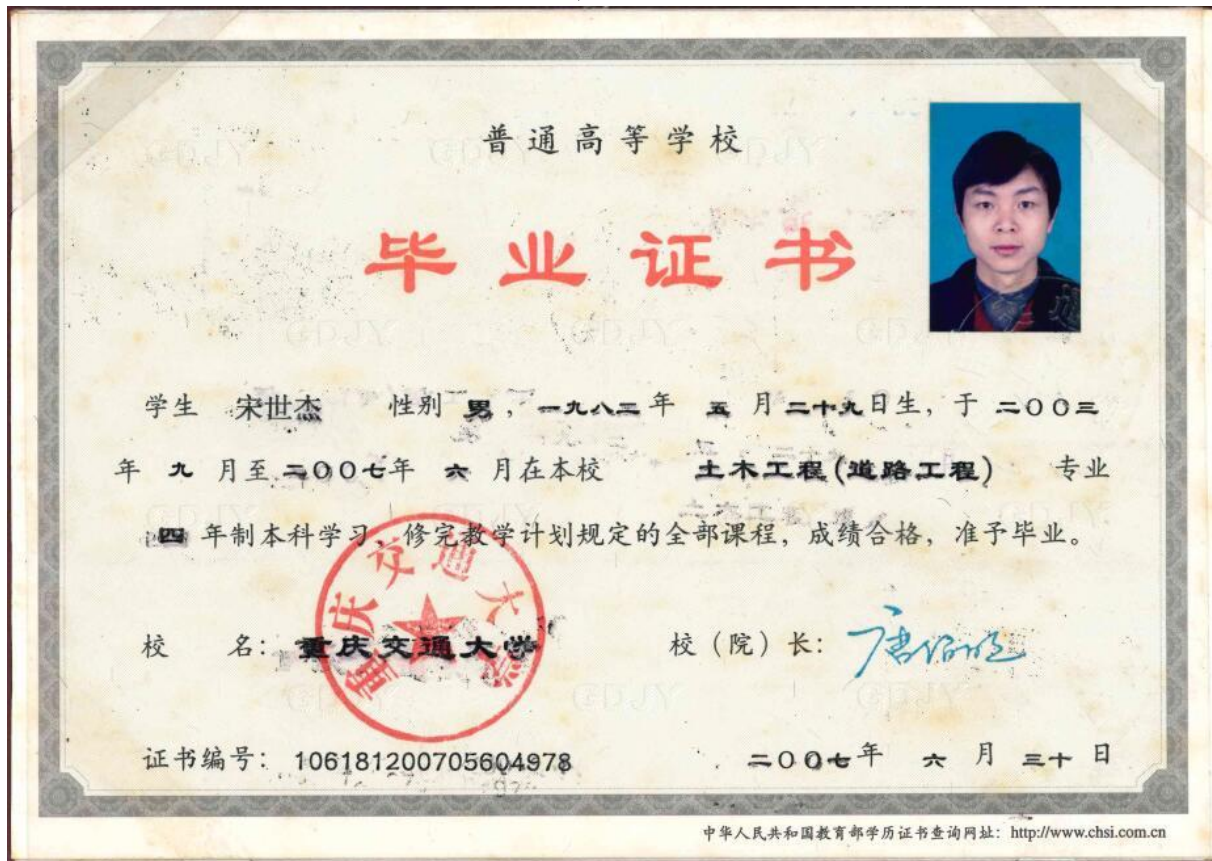 普通高等学校
毕业证书
学生 宋世杰 性别 男，一九八二年 五 月二十九日生，于 二〇〇三
年 九 月至 二〇〇七年 六 月在本校 土木工程(道路工程) 专业
四 年制本科学习，修完教学计划规定的全部课程，成绩合格，准予毕业。
重庆交通大学
校 名：重庆交通大学 校（院）长：唐伯明
证书编号：106181200705604978 二〇〇七年 六 月 三十 日
中华人民共和国教育部学历证书查询网址：http://www.chsi.com.cn